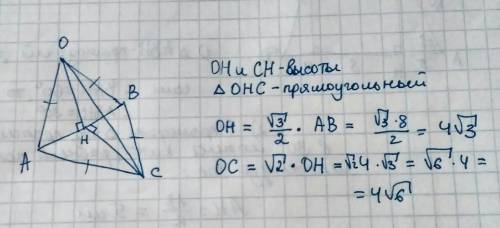 O
B
H
A
C
OH и CH - высоты
△ OHC - прямоугольный
OH = √3/2 · AB = √3·8/2 = 4√3
OC = √2 · OH = √2·4·√3 = √6·4 =
= 4√6